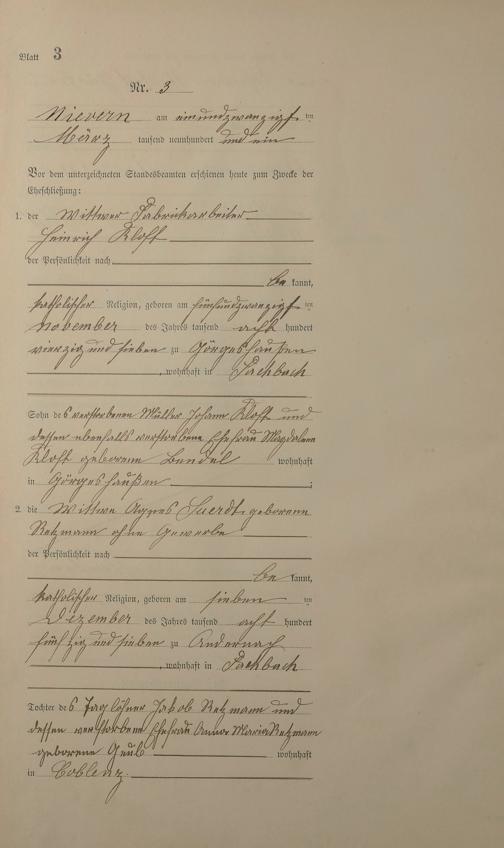 Blatt 3
Nr. 3
Nievern am einundzwanzigsten
März tausend neunhundert und ein
Vor dem unterzeichneten Standesbeamten erschienen heute zum Zwecke der
Eheschließung:
1. der Wittwer Fabrikarbeiter
Heinrich Kloft
der Persönlichkeit nach
be kannt,
katholischer Religion, geboren am fünfundzwanzigsten
November des Jahres tausend acht hundert
vierzig und sieben zu Görgeshausen
, wohnhaft in Fachbach
Sohn des verstorbenen Müller Johann Kloft und
dessen ebenfalls verstorbene Ehefrau Magdalena
Kloft geborene Bendel wohnhaft
in Görgeshaußen ;
2. die Wittwe Agnes geborene
Retzmann ohne Gewerbe
der Persönlichkeit nach
be kannt,
katholischer Religion, geboren am sieben ten
Dezember des Jahres tausend acht hundert
fünfzig und sieben zu Andernach
, wohnhaft in Fachbach
Tochter des Taglöhner Jakob Retzmann und
dessen verstorbene Ehefrau Anna Maria Retzmann
geborene wohnhaft
in Coblenz.